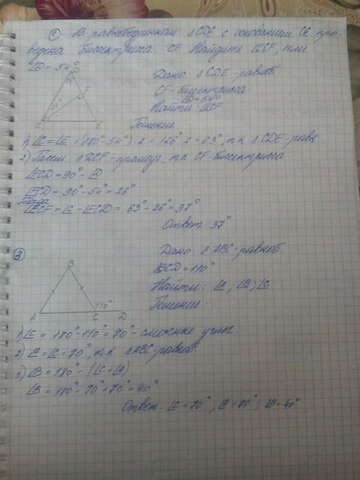 ① В равнобедренном △CDE с основанием CE про-
ведена биссектриса CF. Найдите ∠ECF, если
∠D = 54°.
Дано: △CDE - равноб.
CF - биссектриса
∠D = 54°
Найти: ∠ECF
Решение
1) ∠C = ∠E = (180° - 54°) : 2 = 126° : 2 = 63°, т.к. △CDE - равн.
2) т.к. CF биссектриса
∠ECF = ∠C -
Ответ: 37°
②
B
A C D
110°
Дано: △ABC - равноб.
∠BCD = 110°
Найти: ∠A, ∠B, ∠C
Решение
1) ∠C = 180° - 110° = 70° - смежные углы
2) ∠A = ∠C = 70°, т.к. △ABC - равноб.
3) ∠B = 180° - (∠C + ∠A)
∠B = 180° - 70° + 70° = 40°
Ответ: ∠C = 70°, ∠A = 70°, ∠B = 40°